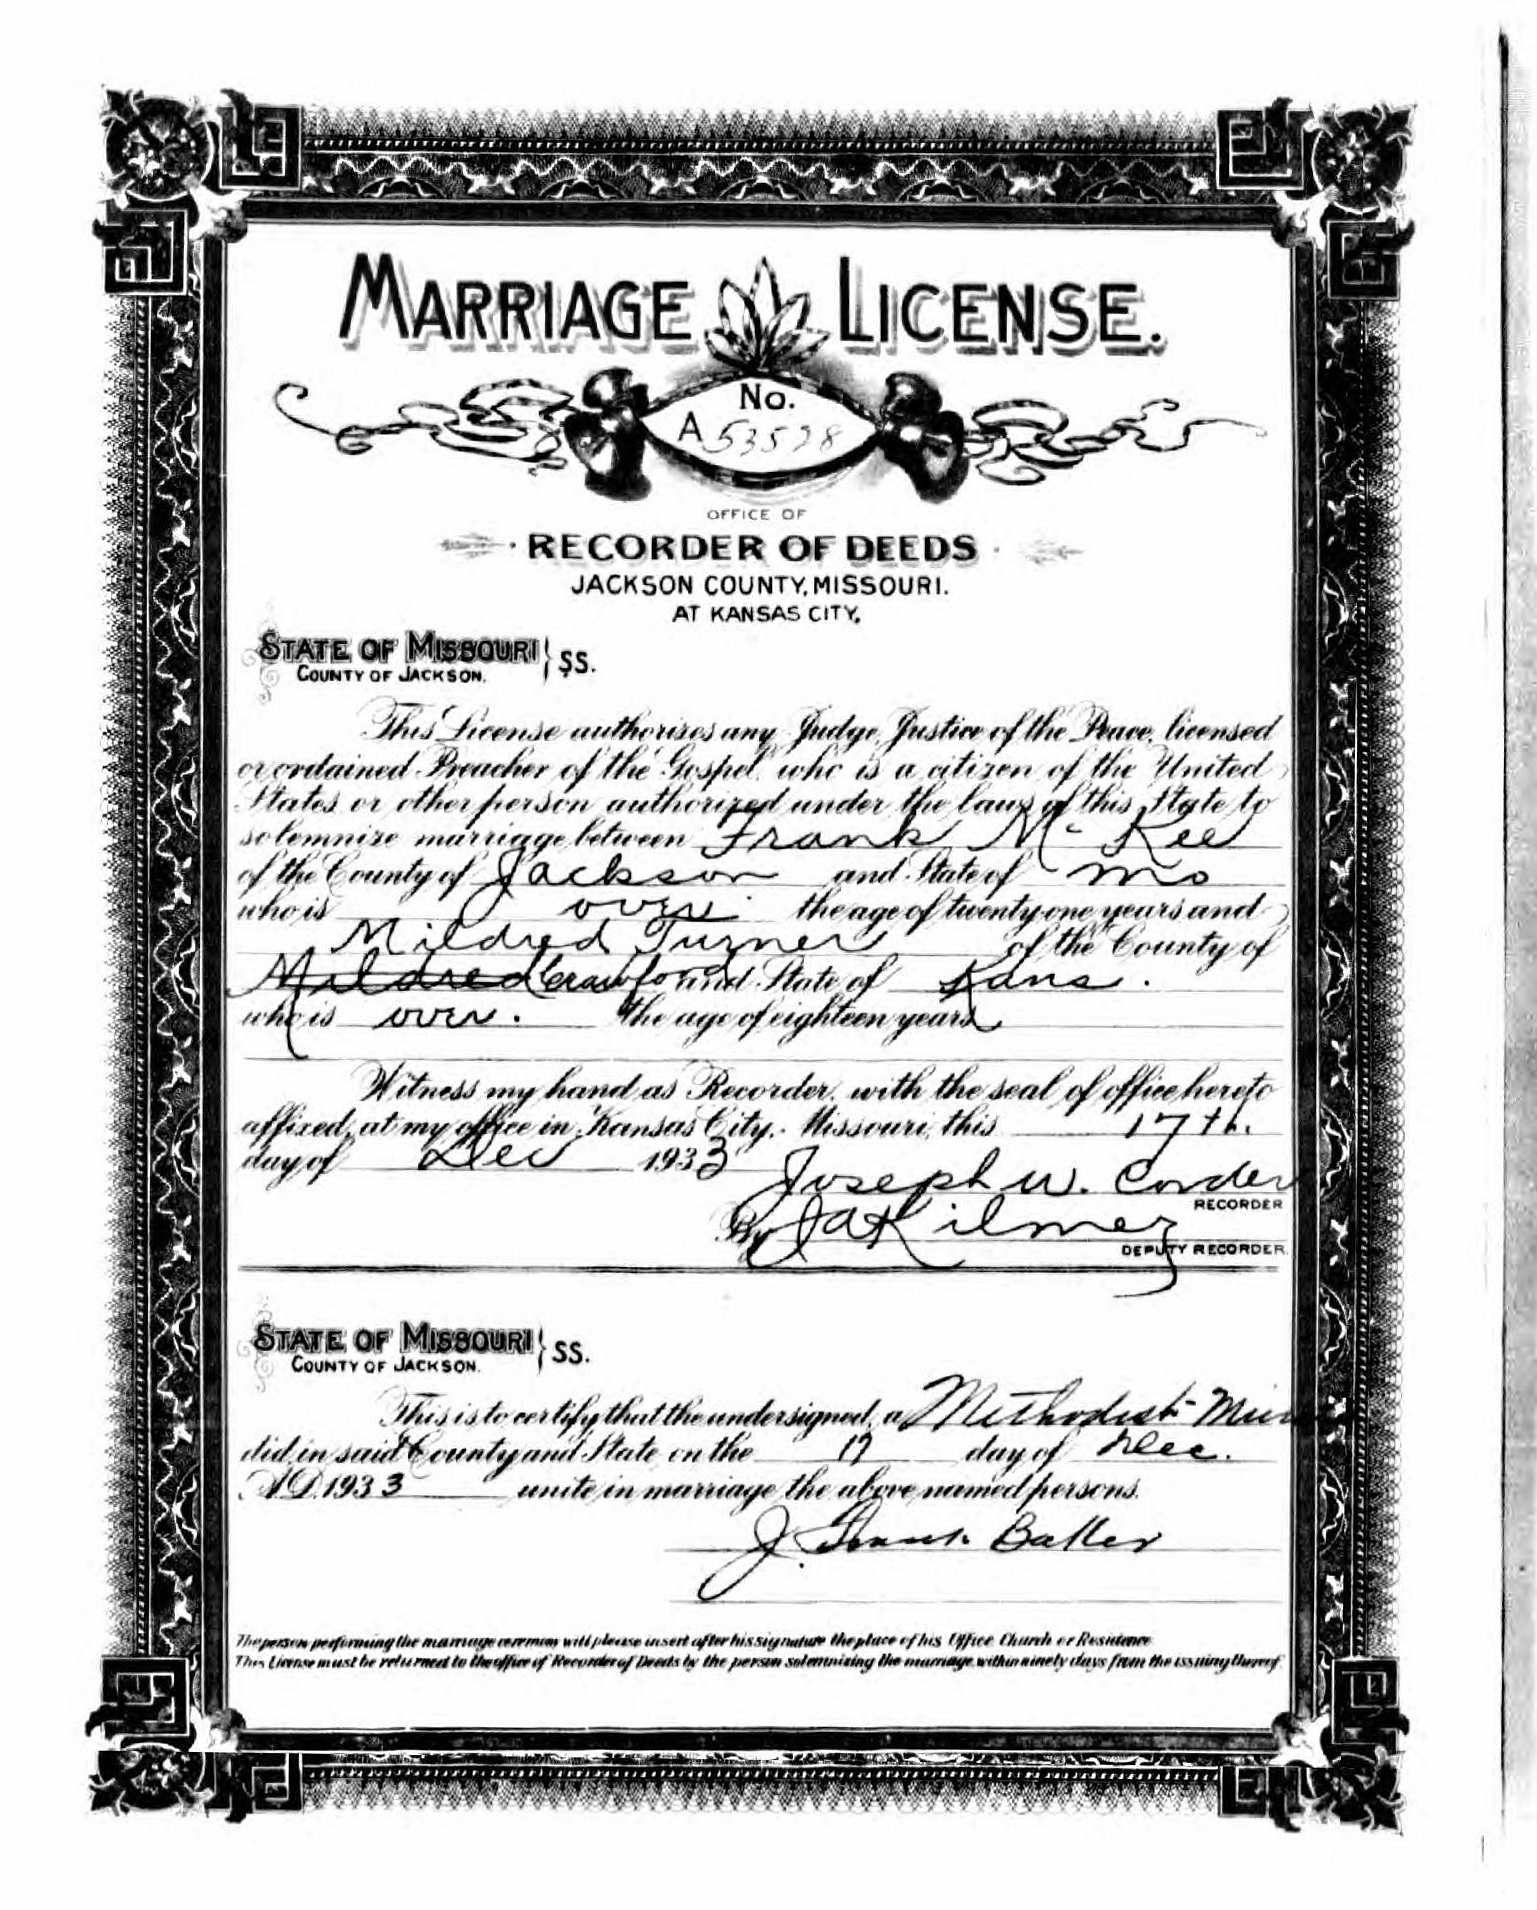 MARRIAGE LICENSE.
No.
A 53578
OFFICE OF
RECORDER OF DEEDS
JACKSON COUNTY, MISSOURI.
AT KANSAS CITY,
STATE OF MISSOURI } SS.
COUNTY OF JACKSON.
This License authorizes any Judge, Justice of the Peace, licensed
or ordained Preacher of the Gospel, who is a citizen of the United
States or other person authorized under the laws of this State to
solemnize marriage between Frank McKee
of the County of Jackson and State of Mo
who is over the age of twenty one years and
Mildred Turner of the County of
Mildred Crawford and State of Kans.
who is over. the age of eighteen years
Witness my hand as Recorder, with the seal of office hereto
affixed, at my office in Kansas City, Missouri, this 17th.
day of Dec 1933
Joseph W. Corder
RECORDER
By J A Kilmer
DEPUTY RECORDER.
STATE OF MISSOURI } SS.
COUNTY OF JACKSON.
This is to certify that the undersigned, a Methodist
did in said County and State, on the 17 day of Dec.
A.D. 1933 unite in marriage the above named persons.
J. Frank Baker
The person performing the marriage ceremony will please insert after his signature the place of his Office Church or Residence
This License must be returned to the office of Recorder of Deeds by the person solemnizing the marriage, within ninety days from the issuing thereof.